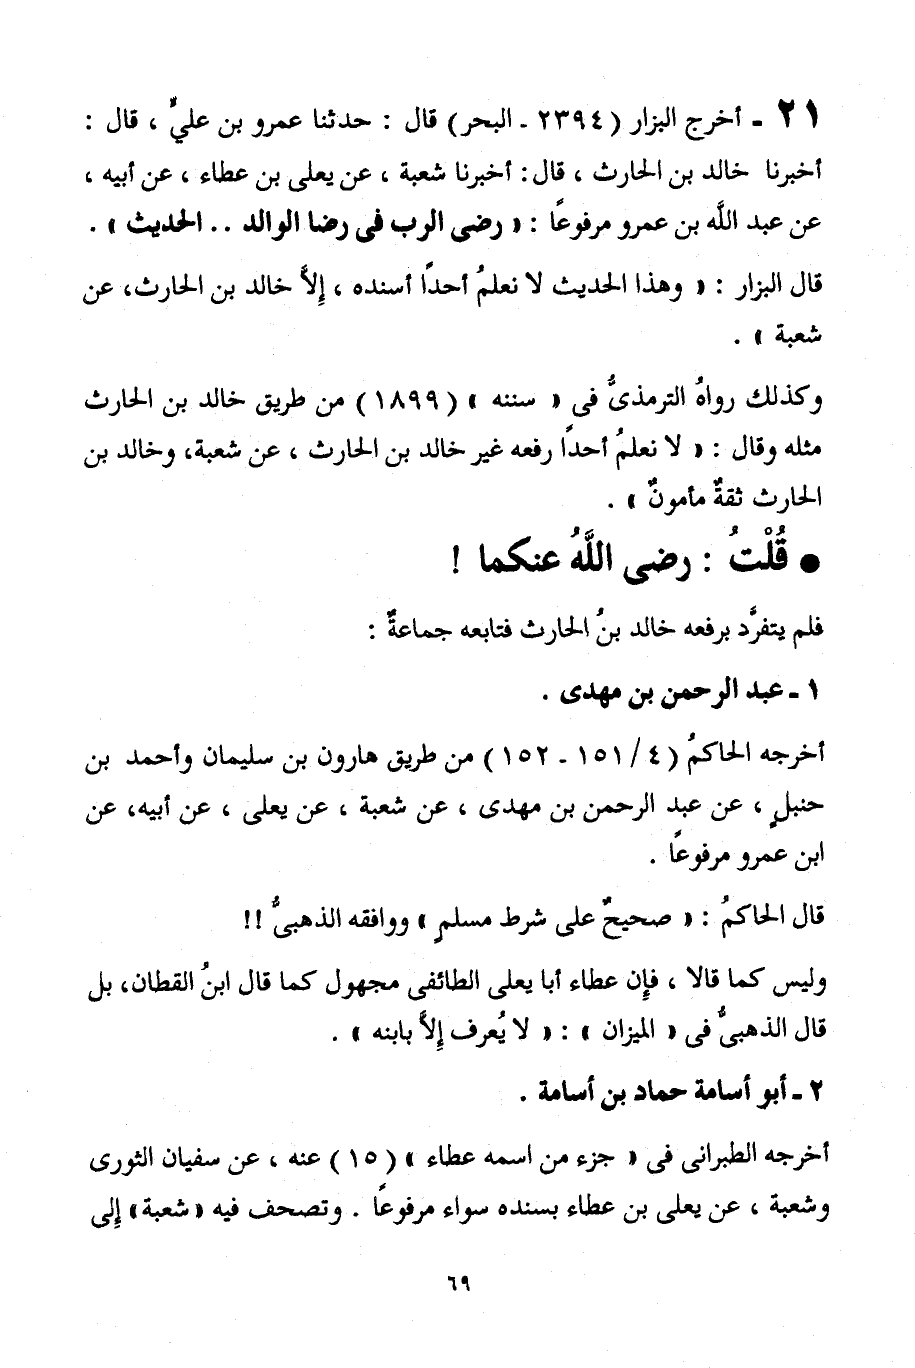 ٢١ ـ أخرج البزار ( ٢٣٩٤ ـ البحر) قال : حدثنا عمرو بن عليٌّ ، قال :
أخبرنا خالد بن الحارث ، قال : أخبرنا شعبة ، عن يعلى بن عطاء ، عن أبيه ،
عن عبد اللَّه بن عمرو مرفوعًا : « رضى الرب فى رضا الوالد .. الحديث » .
قال البزار : « وهذا الحديث لا نعلمُ أحدًا أسنده ، إلاَّ خالد بن الحارث، عن
شعبة » .
وكذلك رواهُ الترمذىُّ فى « سننه » ( ١٨٩٩ ) من طريق خالد بن الحارث
مثله وقال : « لا نعلمُ أحدًا رفعه غير خالد بن الحارث ، عن شعبة، وخالد بن
الحارث ثقةٌ مأمونٌ » .
● قُلْتُ : رضى اللَّهُ عنكما !
فلم يتفرَّد برفعه خالد بنُ الحارث فتابعه جماعةٌ :
١ ـ عبد الرحمن بن مهدى .
أخرجه الحاكمُ ( ٤ / ١٥١ ـ ١٥٢ ) من طريق هارون بن سليمان وأحمد بن
حنبلٍ ، عن عبد الرحمن بن مهدى ، عن شعبة ، عن يعلى ، عن أبيه، عن
ابن عمرو مرفوعًا .
قال الحاكمُ : « صحيحٌ على شرط مسلمٍ » ووافقه الذهبىُّ !!
وليس كما قالا ، فإن عطاء أبا يعلى الطائفى مجهول كما قال ابنُ القطان، بل
قال الذهبىُّ فى « الميزان » : « لا يُعرف إلاَّ بابنه » .
٢ ـ أبو أسامة حماد بن أسامة .
أخرجه الطبرانى فى « جزء من اسمه عطاء » ( ١٥ ) عنه ، عن سفيان الثورى
وشعبة ، عن يعلى بن عطاء بسنده سواء مرفوعًا . وتصحف فيه «شعبة» إلى
٦٩